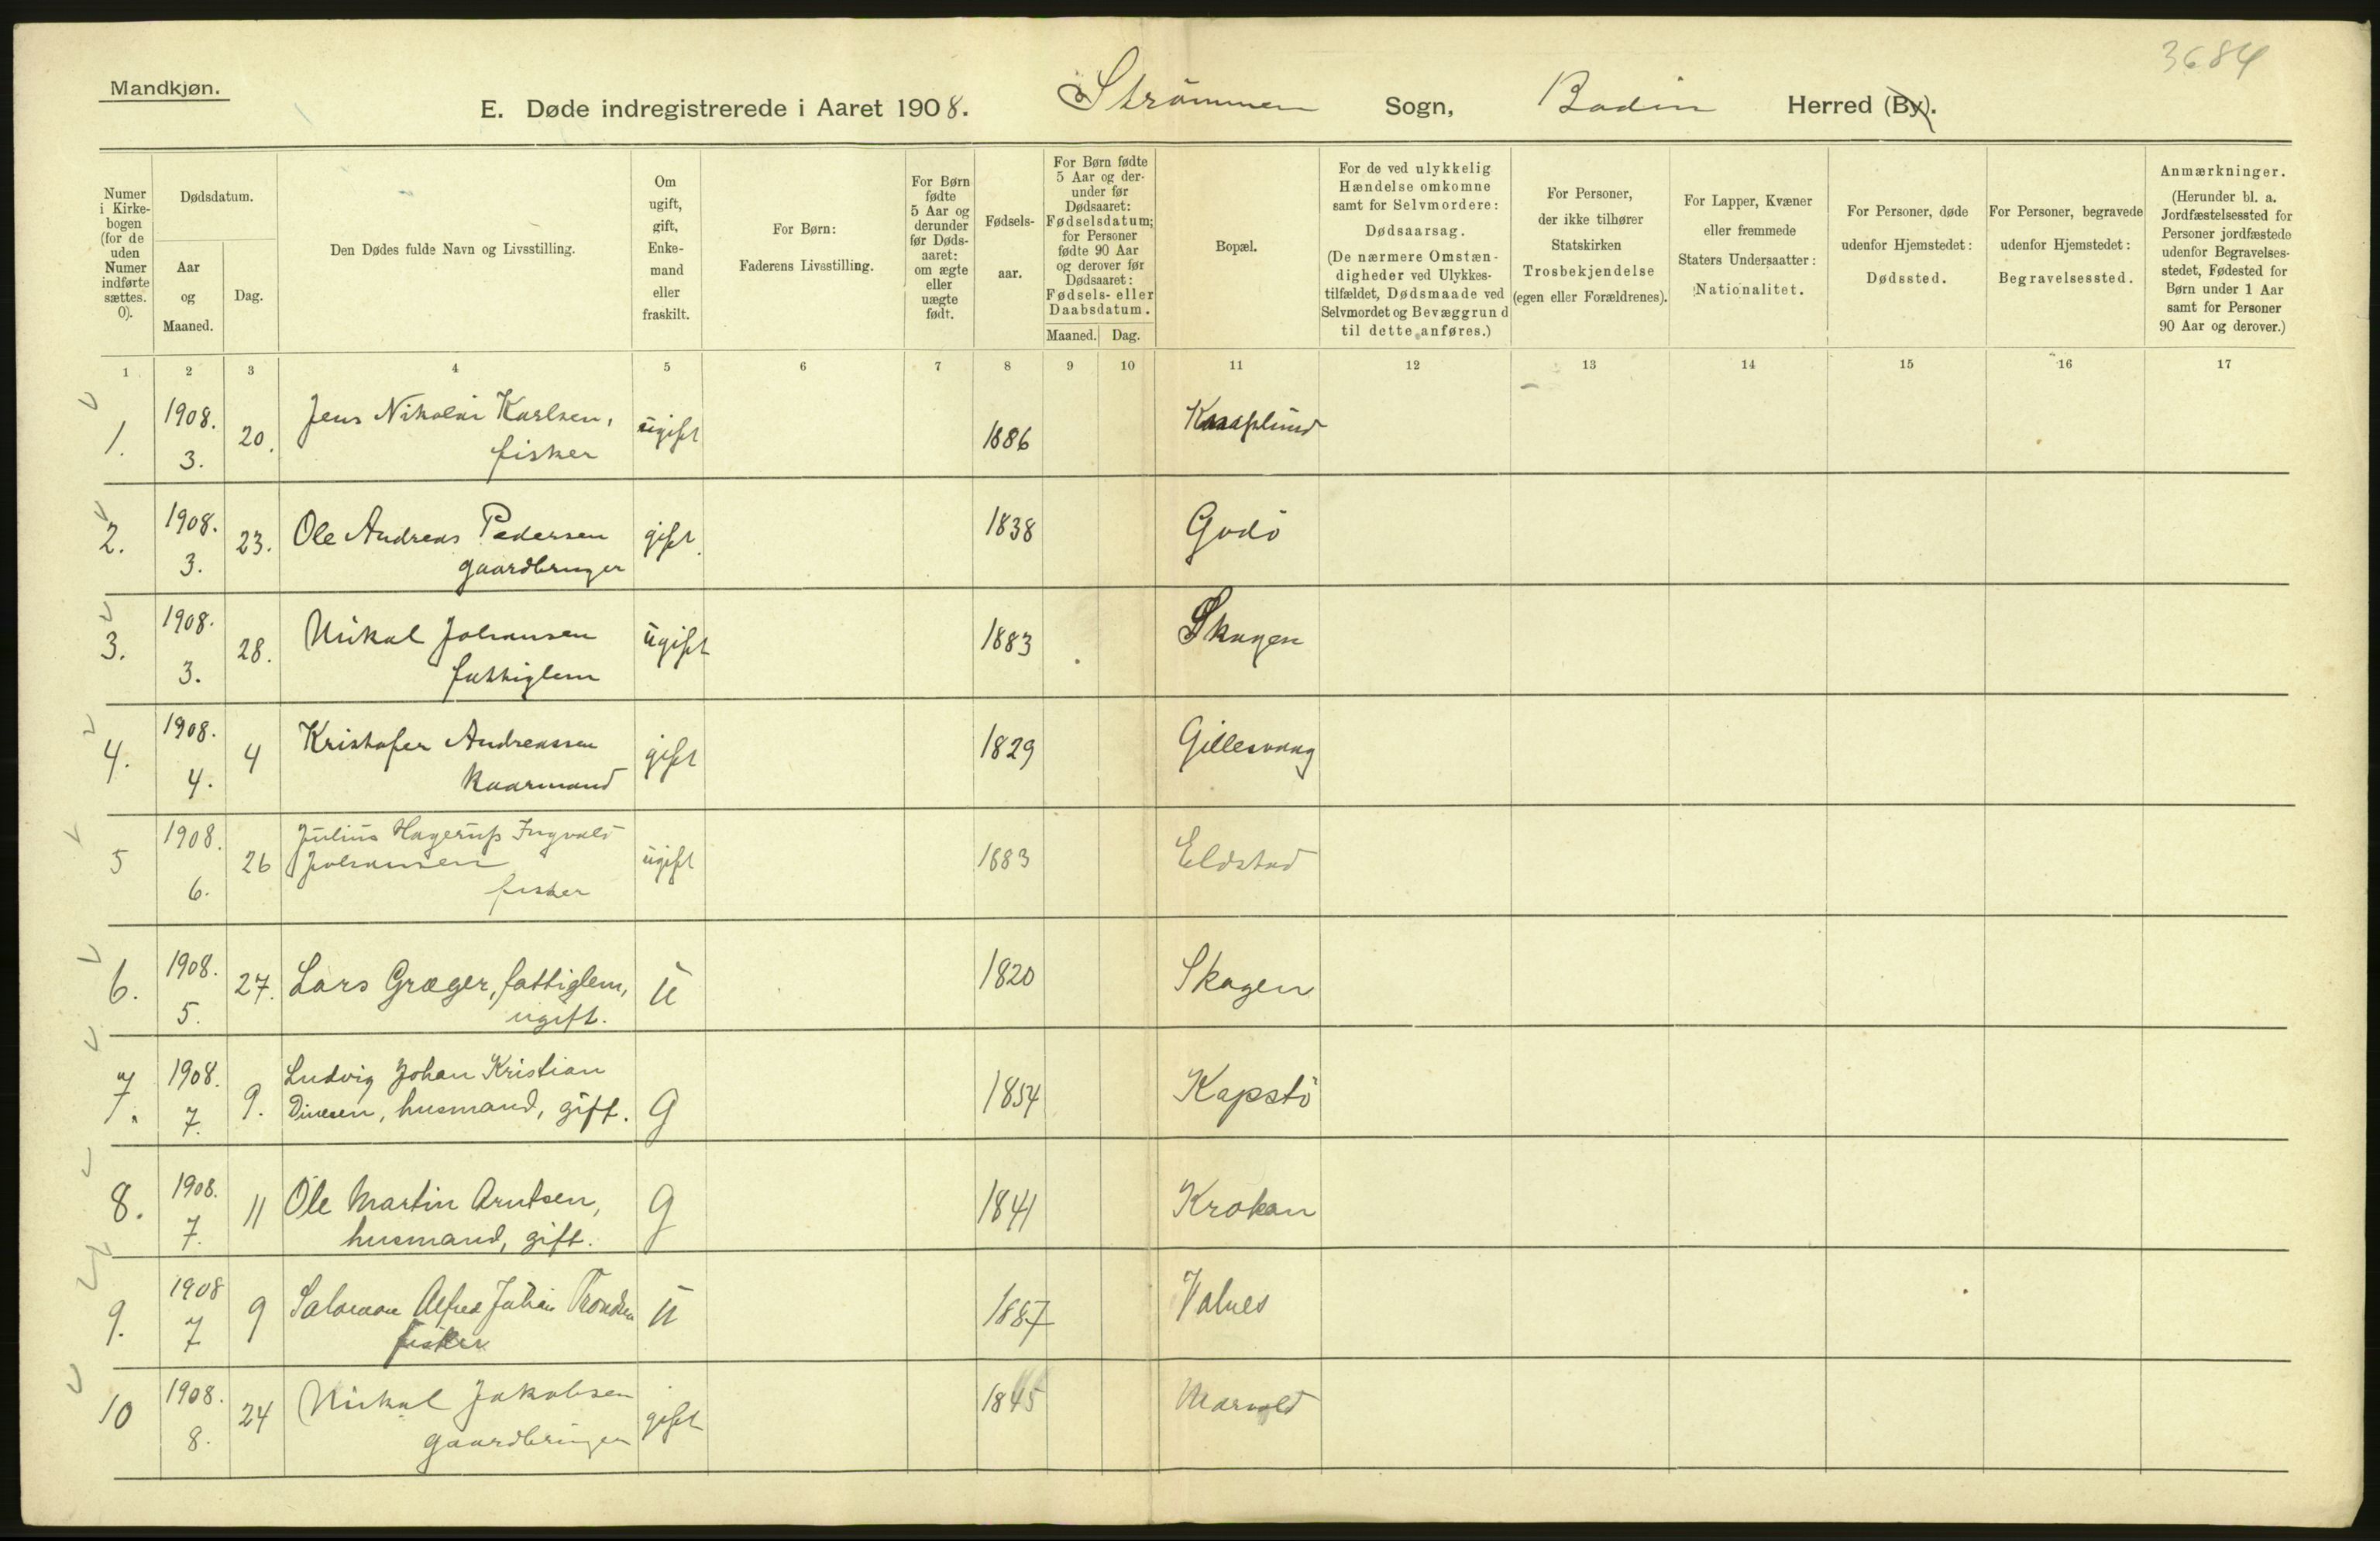 3684
Mandkjøn.
E. Døde indregistrerede i Aaret 1908. Strömmen Sogn, Bodin Herred (By).
Numer i Kirke-bogen (for de uden Numer indførte sættes. 0).
Dødsdatum.
Aar og Maaned.
Dag.
Den Dødes fulde Navn og Livsstilling.
Om ugift, gift, Enke-mand eller fraskilt.
For Børn:
Faderens Livsstilling.
For Børn fødte 5 Aar og derunder før Døds-aaret: om ægte eller uægte født.
Fødsels-aar.
For Børn fødte 5 Aar og der-under før Dødsaaret: Fødselsdatum; for Personer fødte 90 Aar og derover før Dødsaaret: Fødsels- eller Daabsdatum.
Maaned. Dag.
Bopæl.
For de ved ulykkelig Hændelse omkomne samt for Selvmordere: Dødsaarsag. (De nærmere Omstæn-digheder ved Ulykkes-tilfældet, Dødsmaade ved Selvmordet og Bevæggrund til dette anføres.)
For Personer, der ikke tilhører Statskirken Trosbekjendelse (egen eller Forældrenes).
For Lapper, Kvæner eller fremmede Staters Undersaatter: Nationalitet.
For Personer, døde udenfor Hjemstedet: Dødssted.
For Personer, begravede udenfor Hjemstedet: Begravelsessted.
Anmærkninger. (Herunder bl. a. Jordfæstelsessted for Personer jordfæstede udenfor Begravelses-stedet, Fødested for Børn under 1 Aar samt for Personer 90 Aar og derover.)
1 2 3 4 5 6 7 8 9 10 11 12 13 14 15 16 17
1. 1908. 3. 20. Jens Nikolai Karlsen, ugift 1886
fisker
2. 1908. 3. 23. Ole Andreas Pedersen gift 1838 Godö
gaardbruger
3. 1908. 3. 28. Mikal Johansen ugift 1883 Skagen
fattiglem
4. 1908. 4. 4 Kristofer Andreassen gift 1829 Gillesvaag
kaarmand
5 1908. 6. 26 Julius Hagerup Ingvald
Johansen ugift 1883 Eldstad
fisker
6. 1908. 5. 27. Lars Græger, fattiglem, u 1820 Skagen
ugift.
7. 1908. 7. 9. Ludvig Johan Kristian
Dinesen, husmand, gift. g 1854 Kapstö
8. 1908. 7. 11 Ole Martin Arntsen, g 1841 Krokan
husmand, gift.
9. 1908 7 9 Salomon Alfred Julian Trondsen u 1887 Valnes
fisker
10 1908. 8. 24 Mikal Jakobsen gift 1845 Marvold
gaardbruger